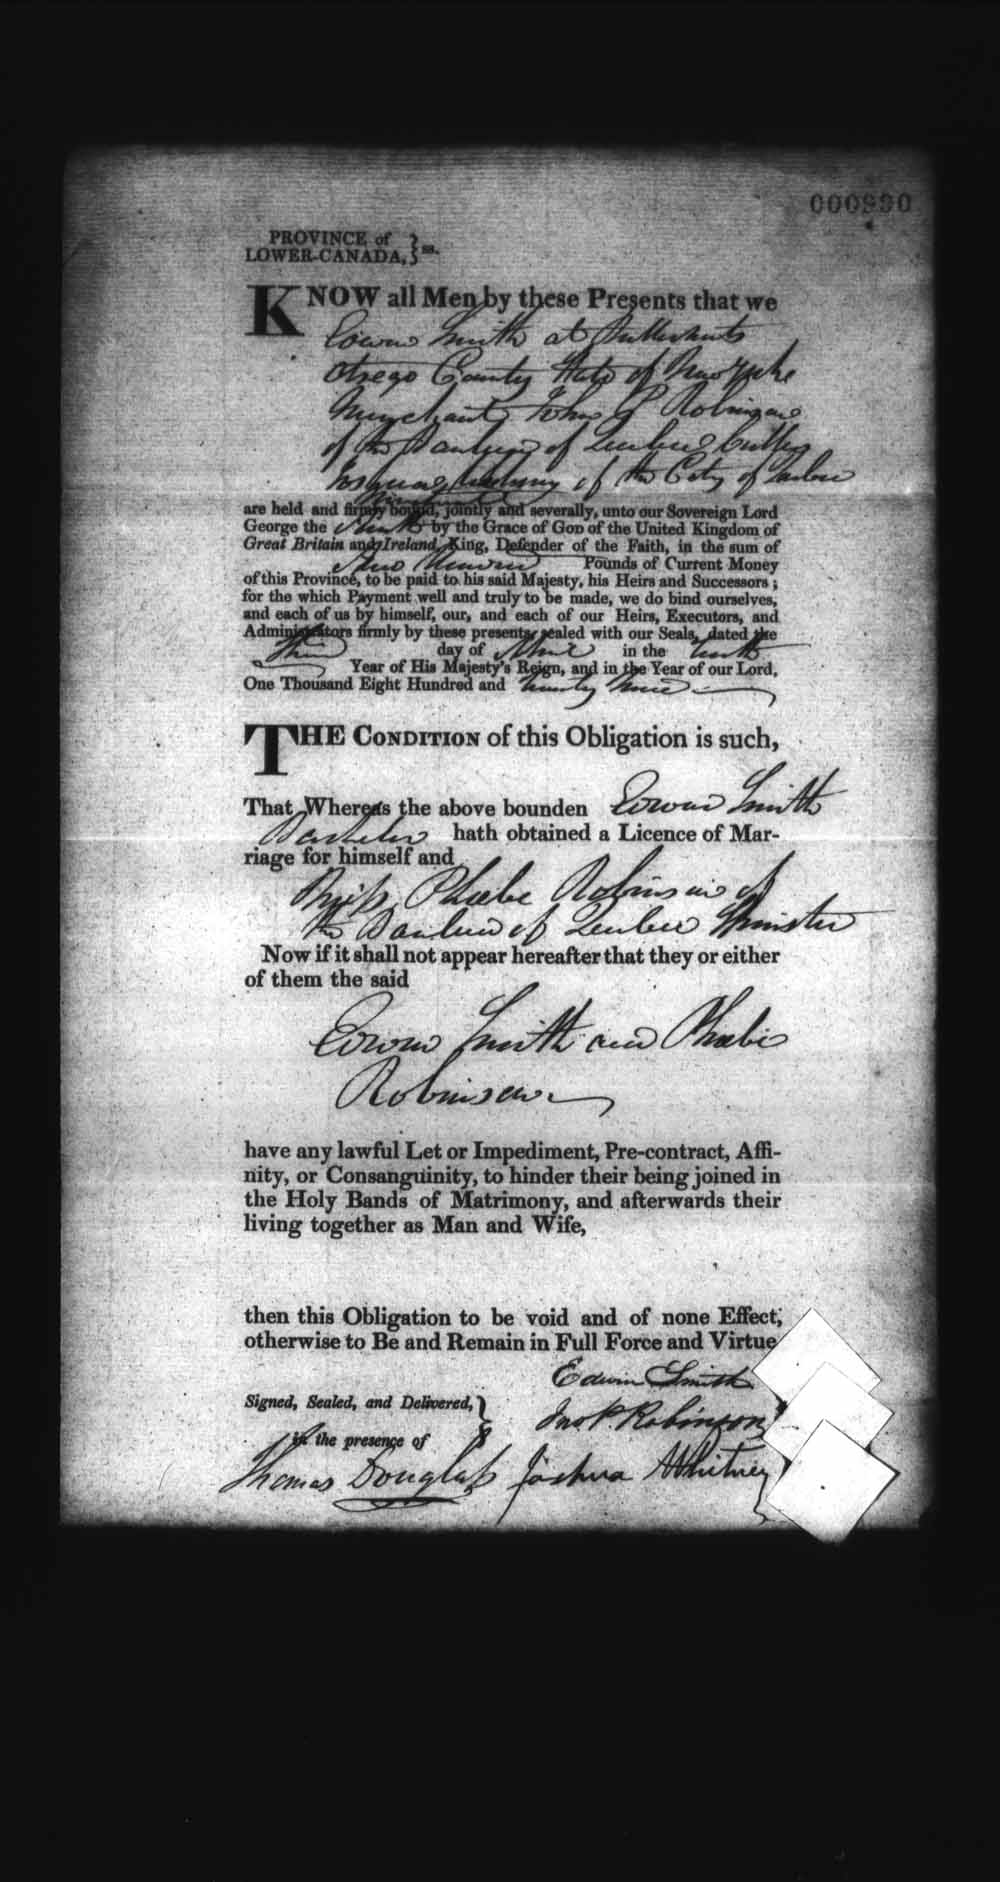 000930
PROVINCE of
LOWER-CANADA, } ss.
KNOW all Men by these Presents that we
Edwin Smith at Butternuts
Otsego County State of New York
Merchant, John P Robinson
of the Banlieu of Quebec
Joshua Whitney of the City of Quebec
are held and firmly bound, jointly and severally, unto our Sovereign Lord
George the Fourth by the Grace of God of the United Kingdom of
Great Britain and Ireland, King, Defender of the Faith, in the sum of
Two Hundred Pounds of Current Money
of this Province, to be paid to his said Majesty, his Heirs and Successors;
for the which Payment well and truly to be made, we do bind ourselves,
and each of us by himself, our, and each of our Heirs, Executors, and
Administrators firmly by these presents, sealed with our Seals, dated the
Third day of in the tenth
Year of His Majesty's Reign, and in the Year of our Lord,
One Thousand Eight Hundred and twenty nine
THE CONDITION of this Obligation is such,
That Whereas the above bounden Edwin Smith
Bachelor hath obtained a Licence of Mar-
riage for himself and
Miss Phœbe Robinson of
the Banlieu of Quebec Spinster
Now if it shall not appear hereafter that they or either
of them the said
Edwin Smith and Phœbe
Robinson
have any lawful Let or Impediment, Pre-contract, Affi-
nity, or Consanguinity, to hinder their being joined in
the Holy Bands of Matrimony, and afterwards their
living together as Man and Wife,
then this Obligation to be void and of none Effect;
otherwise to Be and Remain in Full Force and Virtue
Edwin Smith
Signed, Sealed, and Delivered, }
Jno P. Robinson
in the presence of
Thomas Douglass Joshua Whitney